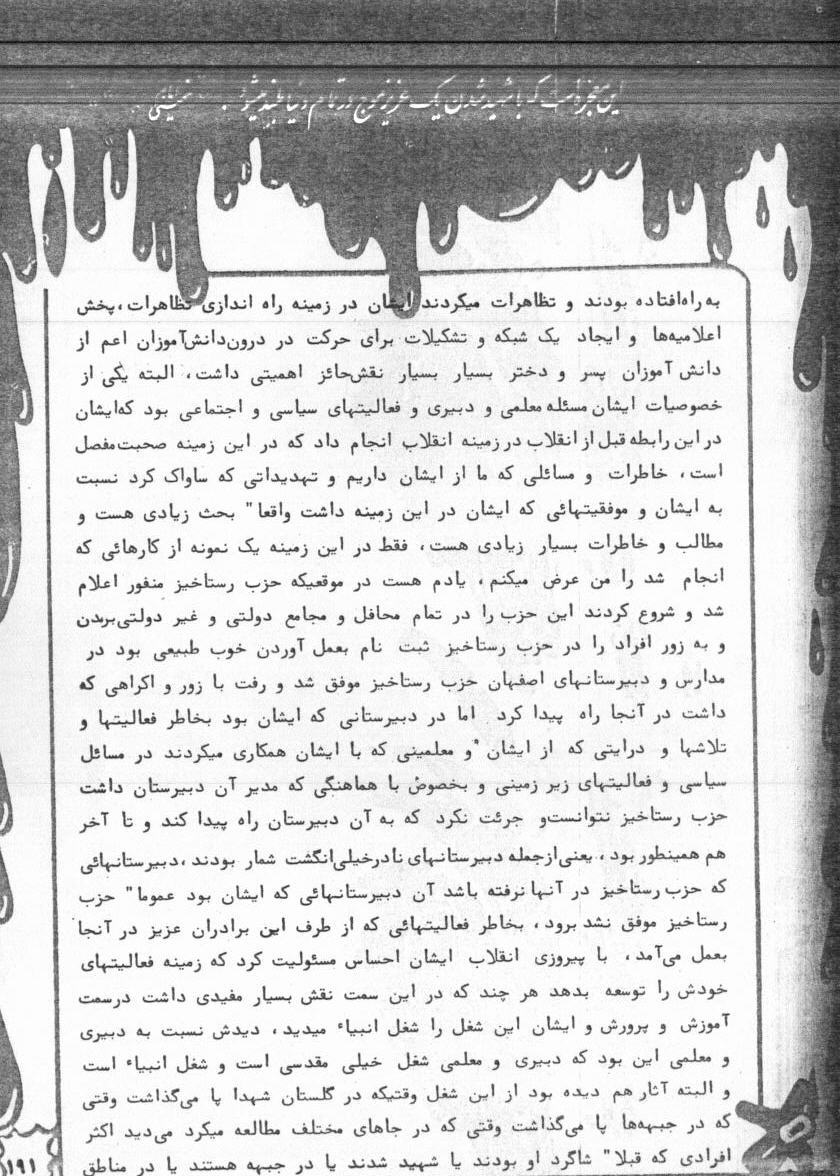 این معجزه است که با شهید شدن یک عزیز موج در تمام دنیا بلند میشود خمینی
به راه‌افتاده بودند و تظاهرات میکردند ایشان در زمینه راه اندازی تظاهرات ،پخش
اعلامیه‌ها و ایجاد یک شبکه و تشکیلات برای حرکت در درون‌دانش‌آموزان اعم از
دانش آموزان پسر و دختر بسیار بسیار نقش‌حائز اهمیتی داشت، البته یکی از
خصوصیات ایشان مسئله معلمی و دبیری و فعالیتهای سیاسی و اجتماعی بود که‌ایشان
در این رابطه قبل از انقلاب در زمینه انقلاب انجام داد که در این زمینه صحبت‌مفصل
است، خاطرات و مسائلی که ما از ایشان داریم و تهدیداتی که ساواک کرد نسبت
به ایشان و موفقیتهائی که ایشان در این زمینه داشت واقعا" بحث زیادی هست و
مطالب و خاطرات بسیار زیادی هست، فقط در این زمینه یک نمونه از کارهائی که
انجام شد را من عرض میکنم، یادم هست در موقعیکه حزب رستاخیز منفور اعلام
شد و شروع کردند این حزب را در تمام محافل و مجامع دولتی و غیر دولتی‌بردن
و به زور افراد را در حزب رستاخیز ثبت نام بعمل آوردن خوب طبیعی بود در
مدارس و دبیرستانهای اصفهان حزب رستاخیز موفق شد و رفت با زور و اکراهی که
داشت در آنجا راه پیدا کرد اما در دبیرستانی که ایشان بود بخاطر فعالیتها و
تلاشها و درایتی که از ایشان و معلمینی که با ایشان همکاری میکردند در مسائل
سیاسی و فعالیتهای زیر زمینی و بخصوص با هماهنگی که مدیر آن دبیرستان داشت
حزب رستاخیز نتوانست‌و جرئت نکرد که به آن دبیرستان راه پیدا کند و تا آخر
هم همینطور بود، یعنی‌ازجمله دبیرستانهای نادرخیلی‌انگشت شمار بودند ،دبیرستانهائی
که حزب رستاخیز در آنها نرفته باشد آن دبیرستانهائی که ایشان بود عموما" حزب
رستاخیز موفق نشد برود، بخاطر فعالیتهائی که از طرف این برادران عزیز در آنجا
بعمل می‌آمد، با پیروزی انقلاب ایشان احساس مسئولیت کرد که زمینه فعالیتهای
خودش را توسعه بدهد هر چند که در این سمت نقش بسیار مفیدی داشت درسمت
آموزش و پرورش و ایشان این شغل را شغل انبیاء میدید، دیدش نسبت به دبیری
و معلمی این بود که دبیری و معلمی شغل خیلی مقدسی است و شغل انبیاء است
و البته آثار هم دیده بود از این شغل وقتیکه در گلستان شهدا پا می‌گذاشت وقتی
که در جبهه‌ها پا می‌گذاشت وقتی که در جاهای مختلف مطالعه میکرد می‌دید اکثر
افرادی که قبلا" شاگرد او بودند یا شهید شدند یا در جبهه هستند یا در مناطق
۱۹۱